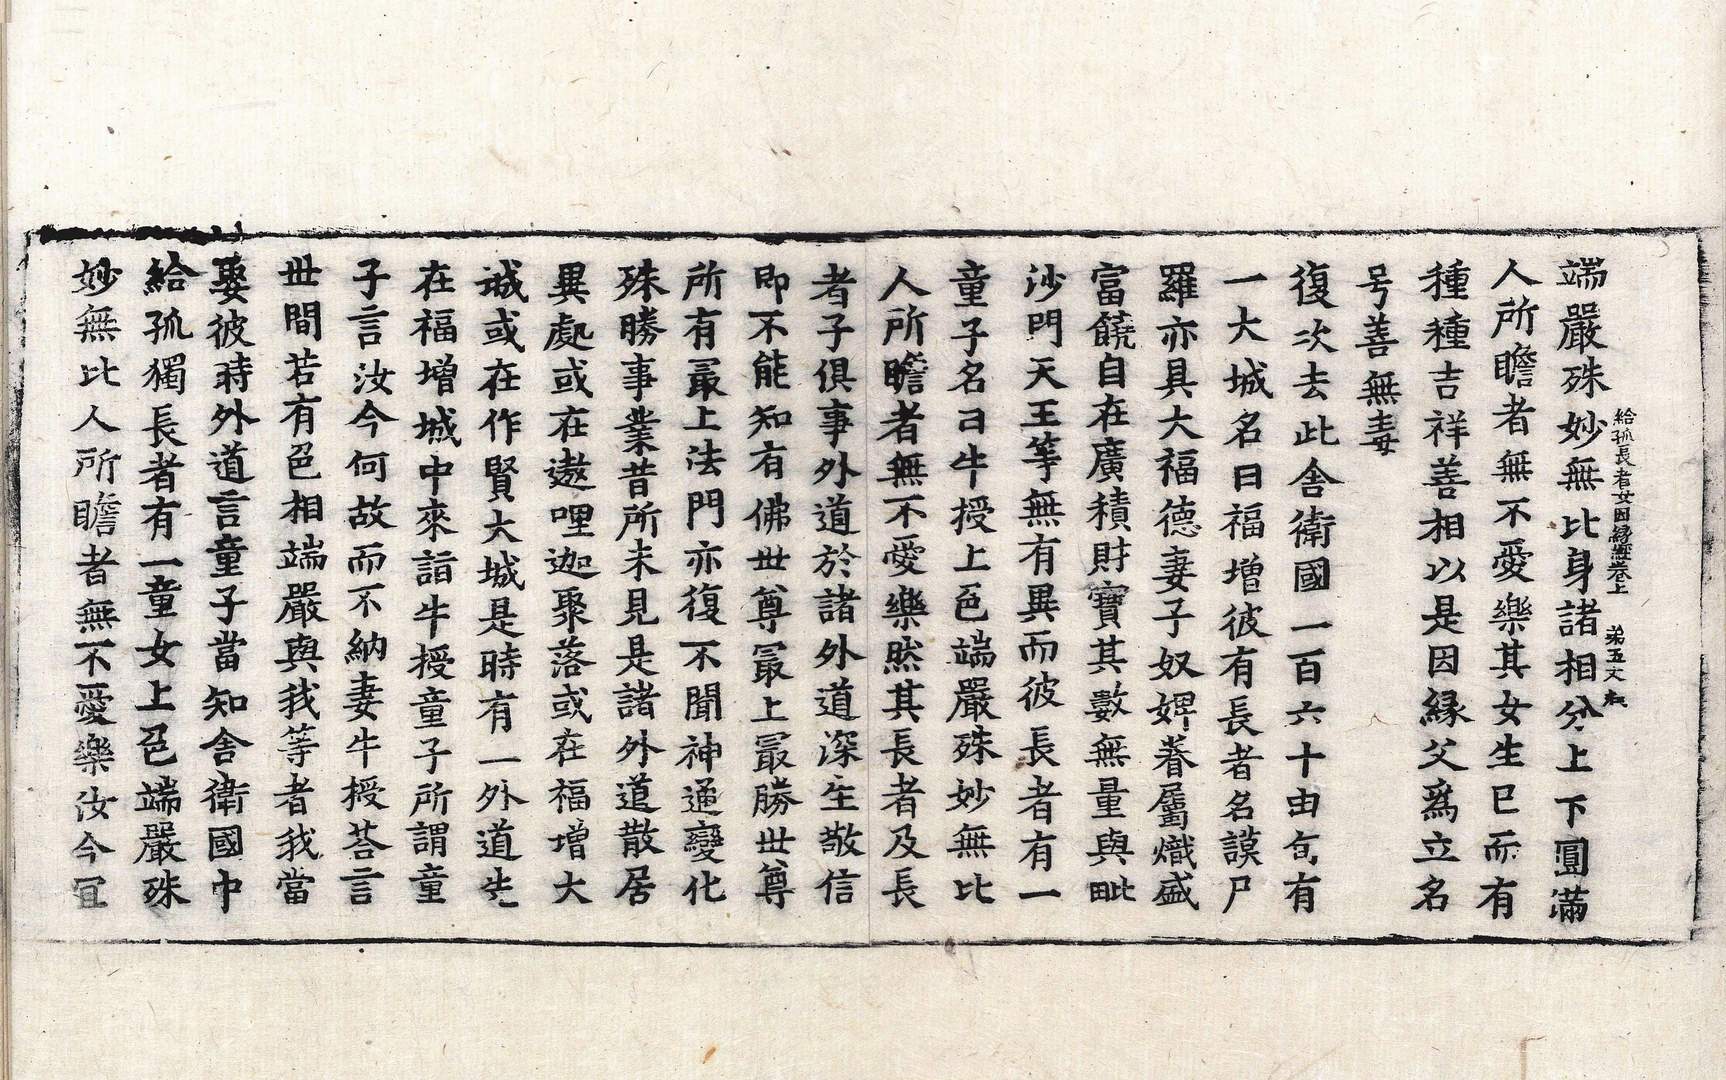 給孤長者女因縁經卷上　第五丈
端嚴殊妙無比身諸相分上下圓滿
人所瞻者無不愛樂其女生已而有
種種吉祥善相以是因縁父爲立名
号善無毒
復次去此舍衛國一百六十由旬有
一大城名曰福增彼有長者名謨尸
羅亦具大福德妻子奴婢眷屬熾盛
富饒自在廣積財寶其數無量與毗
沙門天王等無有異而彼長者有一
童子名曰牛授上色端嚴殊妙無比
人所瞻者無不愛樂然其長者及長
者子俱事外道於諸外道深生敬信
即不能知有佛世尊最上最勝世尊
所有最上法門亦復不聞神通變化
殊勝事業昔所未見是諸外道散居
異處或在遨哩迦聚落或在福增大
城或在作賢大城是時有一外道先
在福增城中來詣牛授童子所謂童
子言汝今何故而不納妻牛授荅言
世間若有色相端嚴與我等者我當
娶彼時外道言童子當知舍衛國中
給孤獨長者有一童女上色端嚴殊
妙無比人所瞻者無不愛樂汝今冝